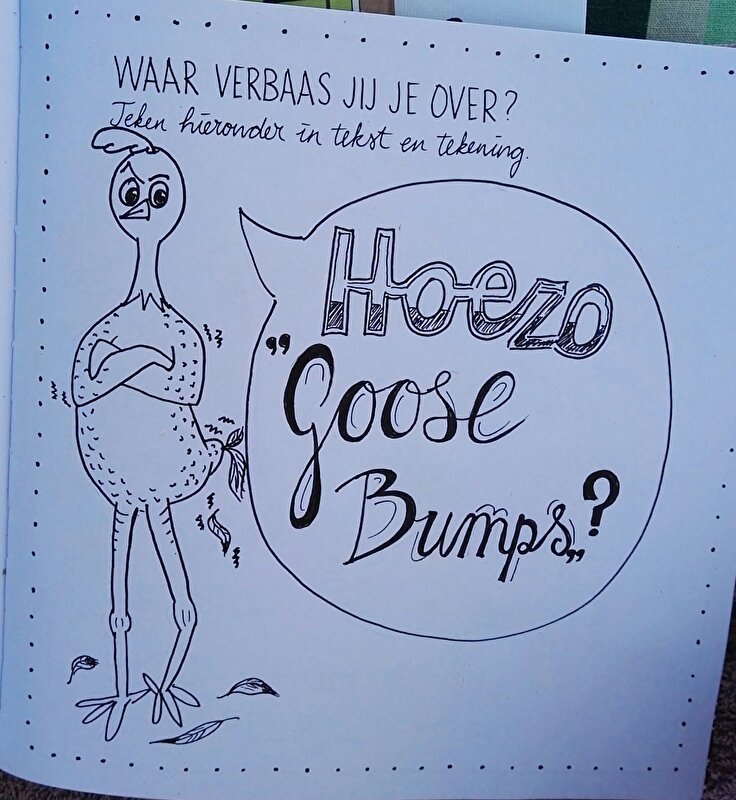 WAAR VERBAAS JIJ JE OVER?
Teken hieronder in tekst en tekening.
Hoezo
„Goose
Bumps„?